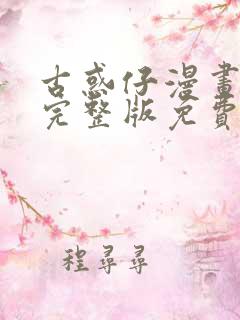 古惑仔漫畫
完整版免費
程尋尋